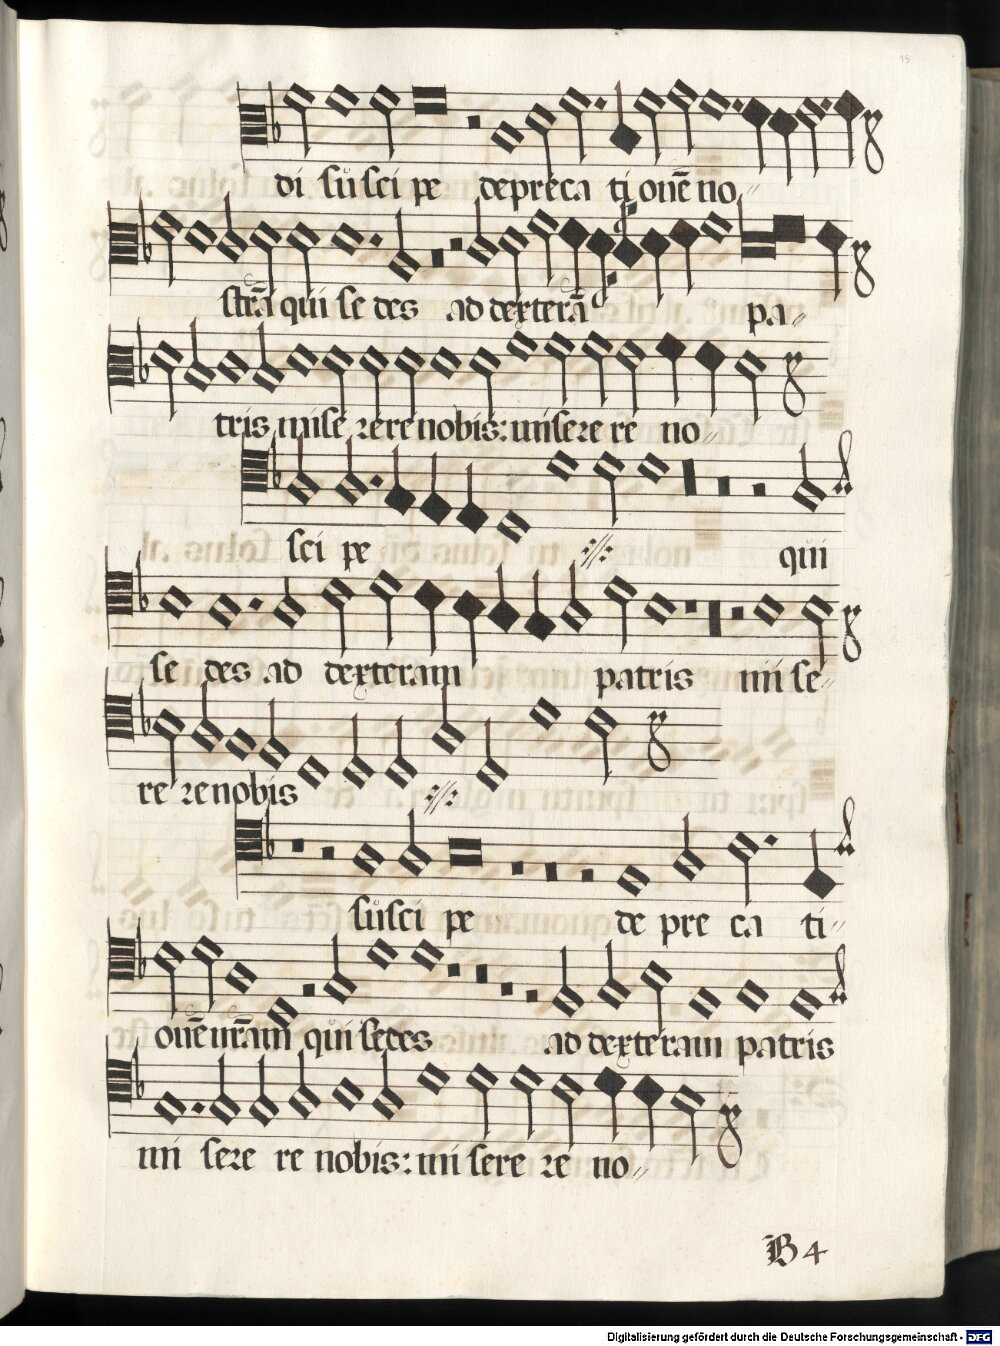 15
di suscipe depreca tionē no
strā qui sedes ad dexterā pa
tris misererenobis: miserere no
scipe qui
sedes ad dexteram patris mise
rerenobis
suscipe depreca ti
onē nr̄am qui sedes ad dexteram patris
miserere nobis: miserere no
B4
Digitalisierung gefördert durch die Deutsche Forschungsgemeinschaft - DFG